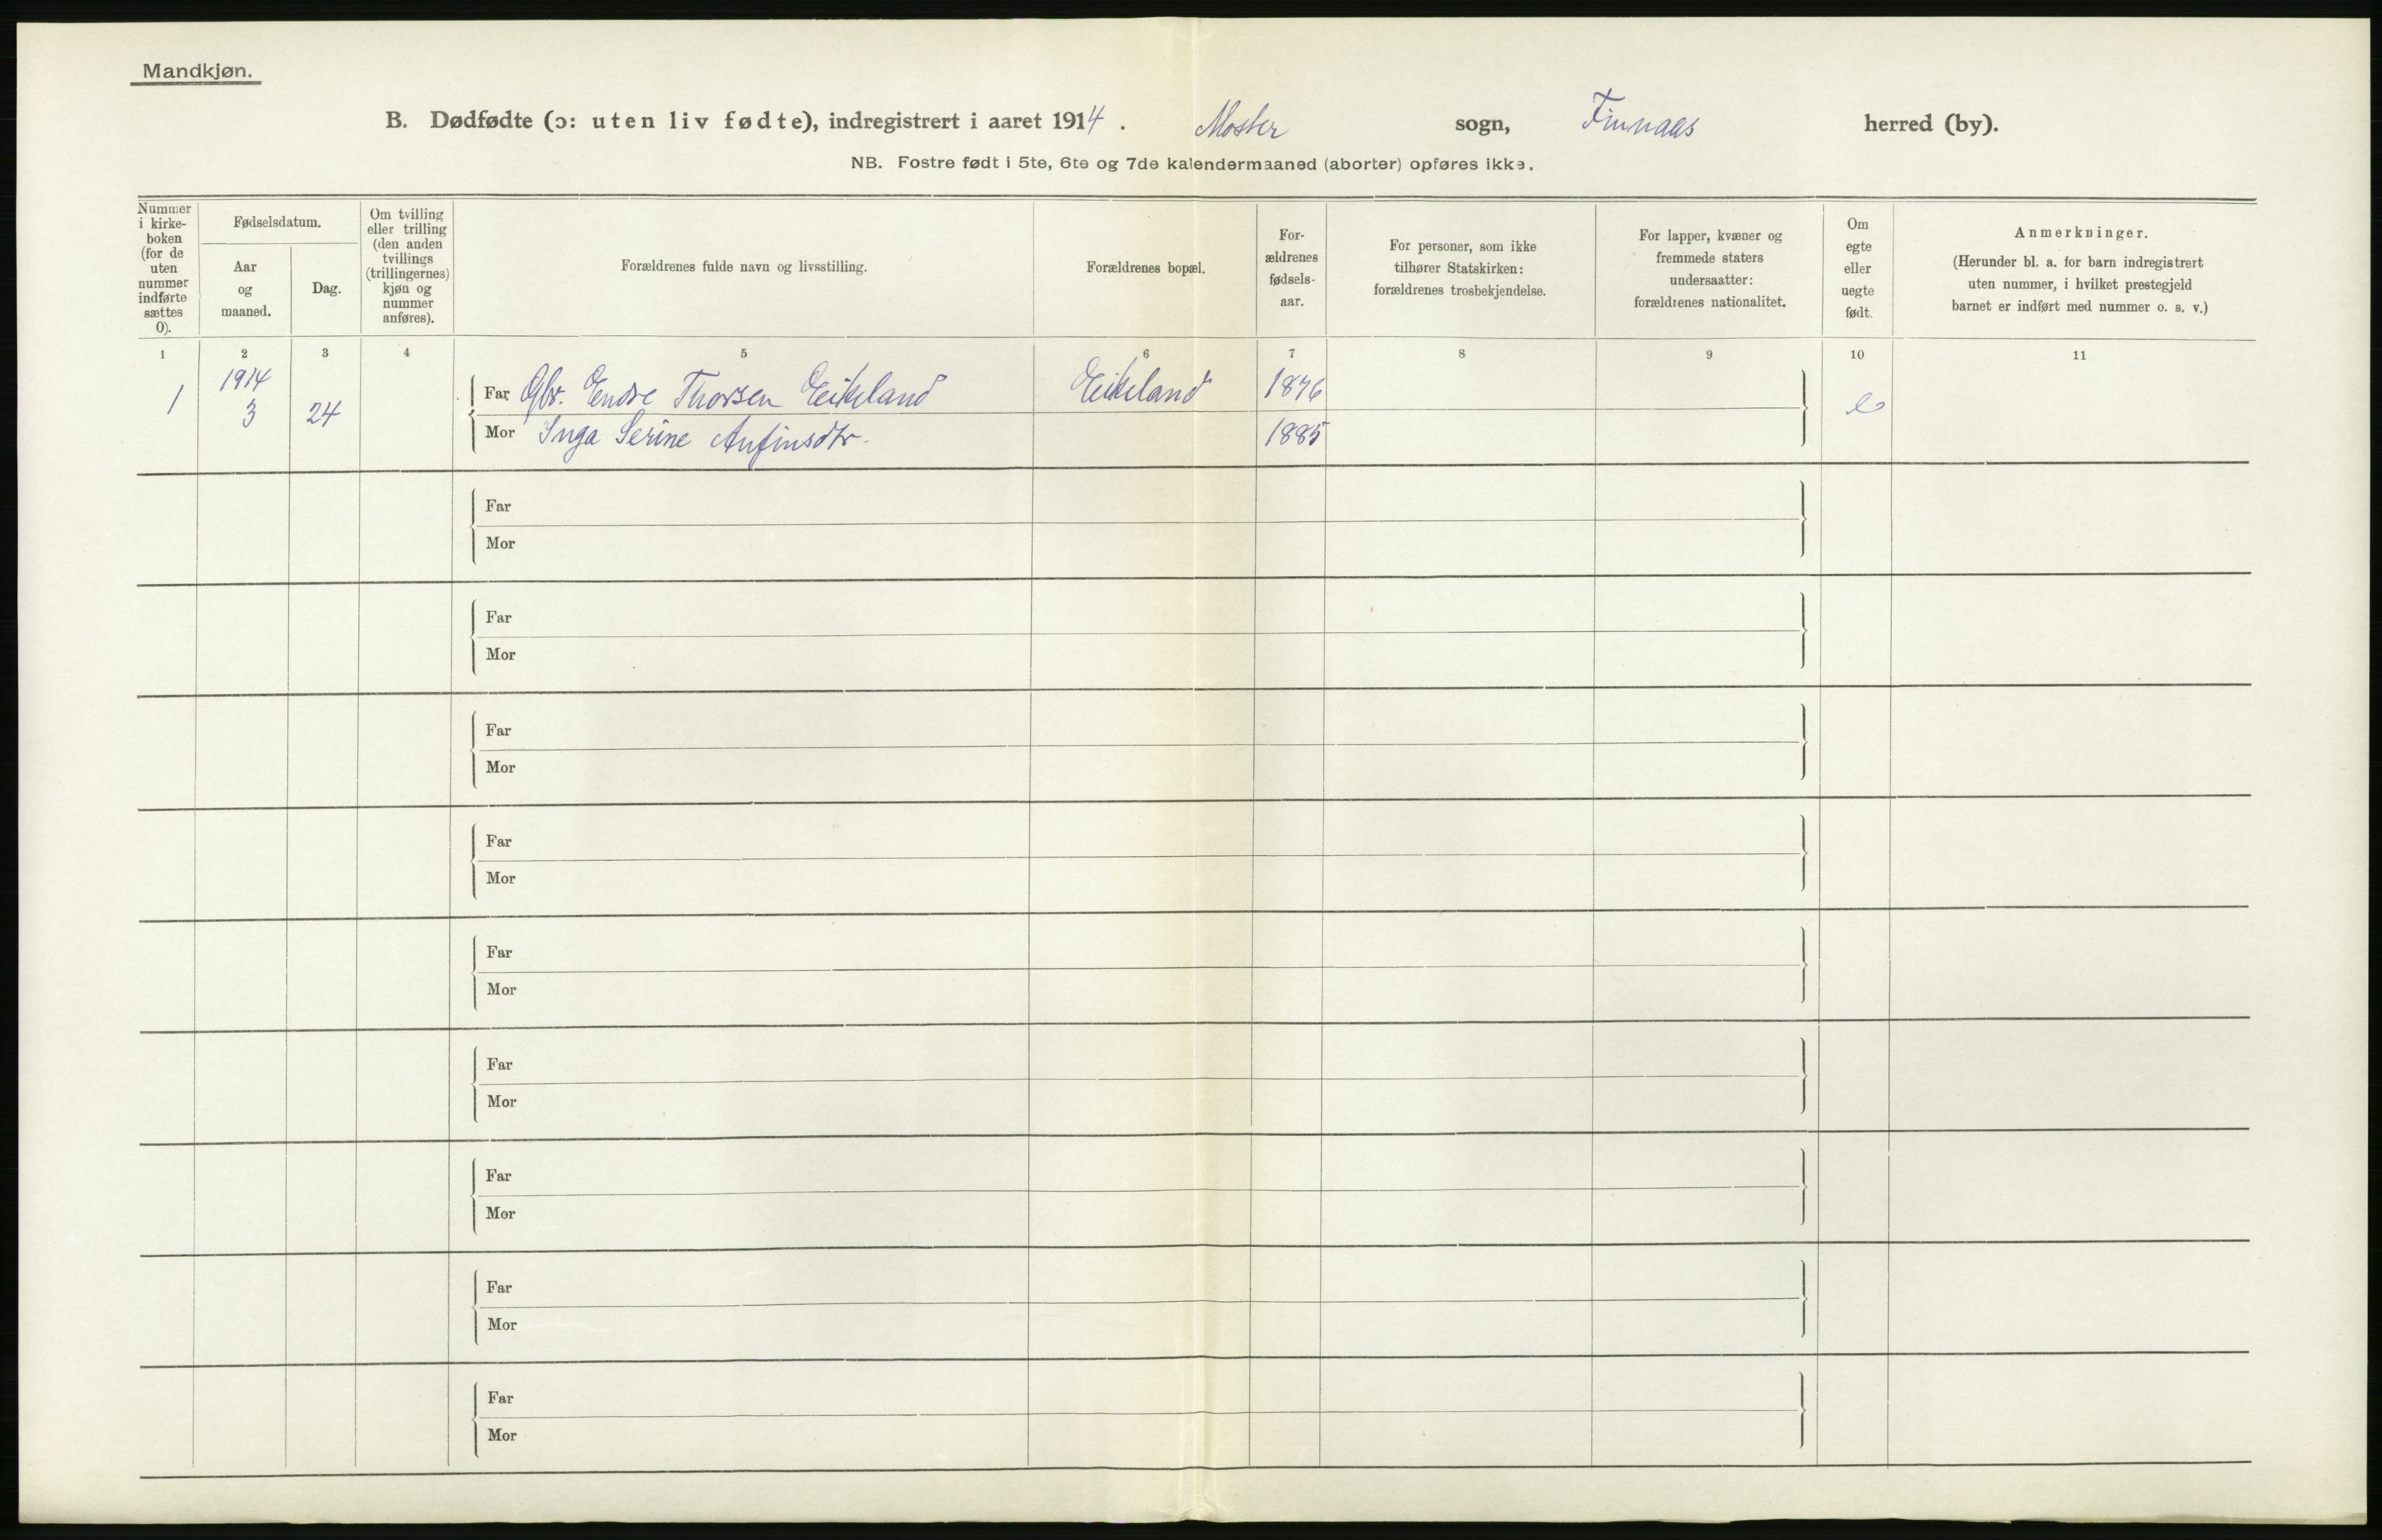 Mandkjøn.
B. Dødfødte (ɔ: uten liv fødte), indregistrert i aaret 1914. Moster sogn, Finnaas herred (by).
NB. Fostre født i 5te, 6te og 7de kalendermaaned (aborter) opføres ikke.
Nummer
i kirke-
boken
(for de
uten
nummer
indførte
sættes
0).
Fødselsdatum.
Aar
og
maaned.
Dag.
Om tvilling
eller trilling
(den anden
tvillings
(trillingernes)
kjøn og
nummer
anføres).
Forældrenes fulde navn og livsstilling.
Forældrenes bopæl.
For-
ældrenes
fødsels-
aar.
For personer, som ikke
tilhører Statskirken:
forældrenes trosbekjendelse.
For lapper, kvæner og
fremmede staters
undersaatter:
forældrenes nationalitet.
Om
egte
eller
uegte
født.
Anmerkninger.
(Herunder bl. a. for barn indregistrert
uten nummer, i hvilket prestegjeld
barnet er indført med nummer o. s. v.)
1 2 3 4 5 6 7 8 9 10 11
1914
1 3 24
Far Gbr. Endre Thorsen Eikeland Eikeland 1876 e
Mor Inga Serine Anfinsdtr. 1885
Far
Mor
Far
Mor
Far
Mor
Far
Mor
Far
Mor
Far
Mor
Far
Mor
Far
Mor
Far
Mor